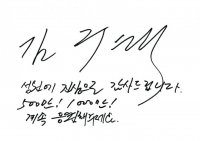 성원에 진심으로 감사드립니다.
500만! 1000만!
계속 응원해주세요.